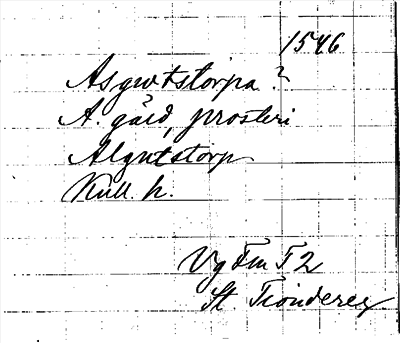 1546
Asgwtstorpa ?
A. gård, prosteri
Algutstorp
Kull. h.
Vg Fm T2
St. Tionderex